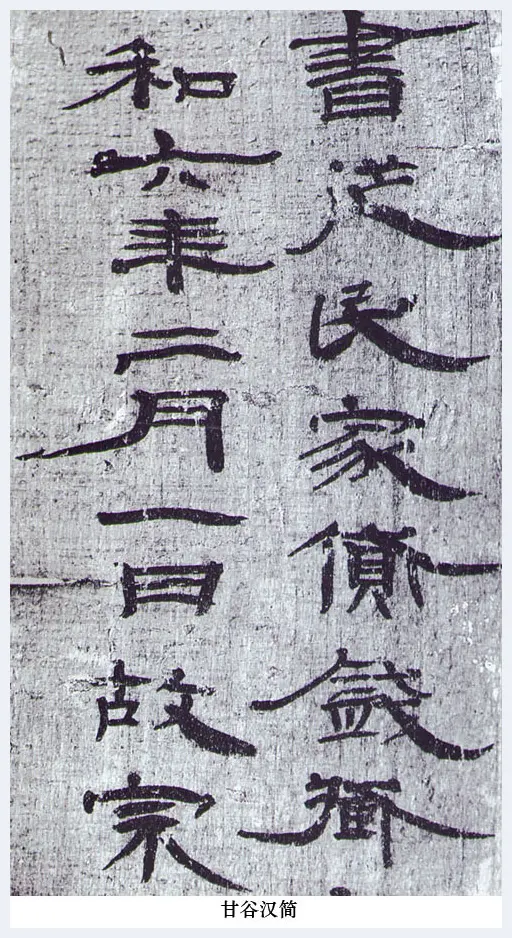 書民家
和六年二月一日故宗
甘谷汉简